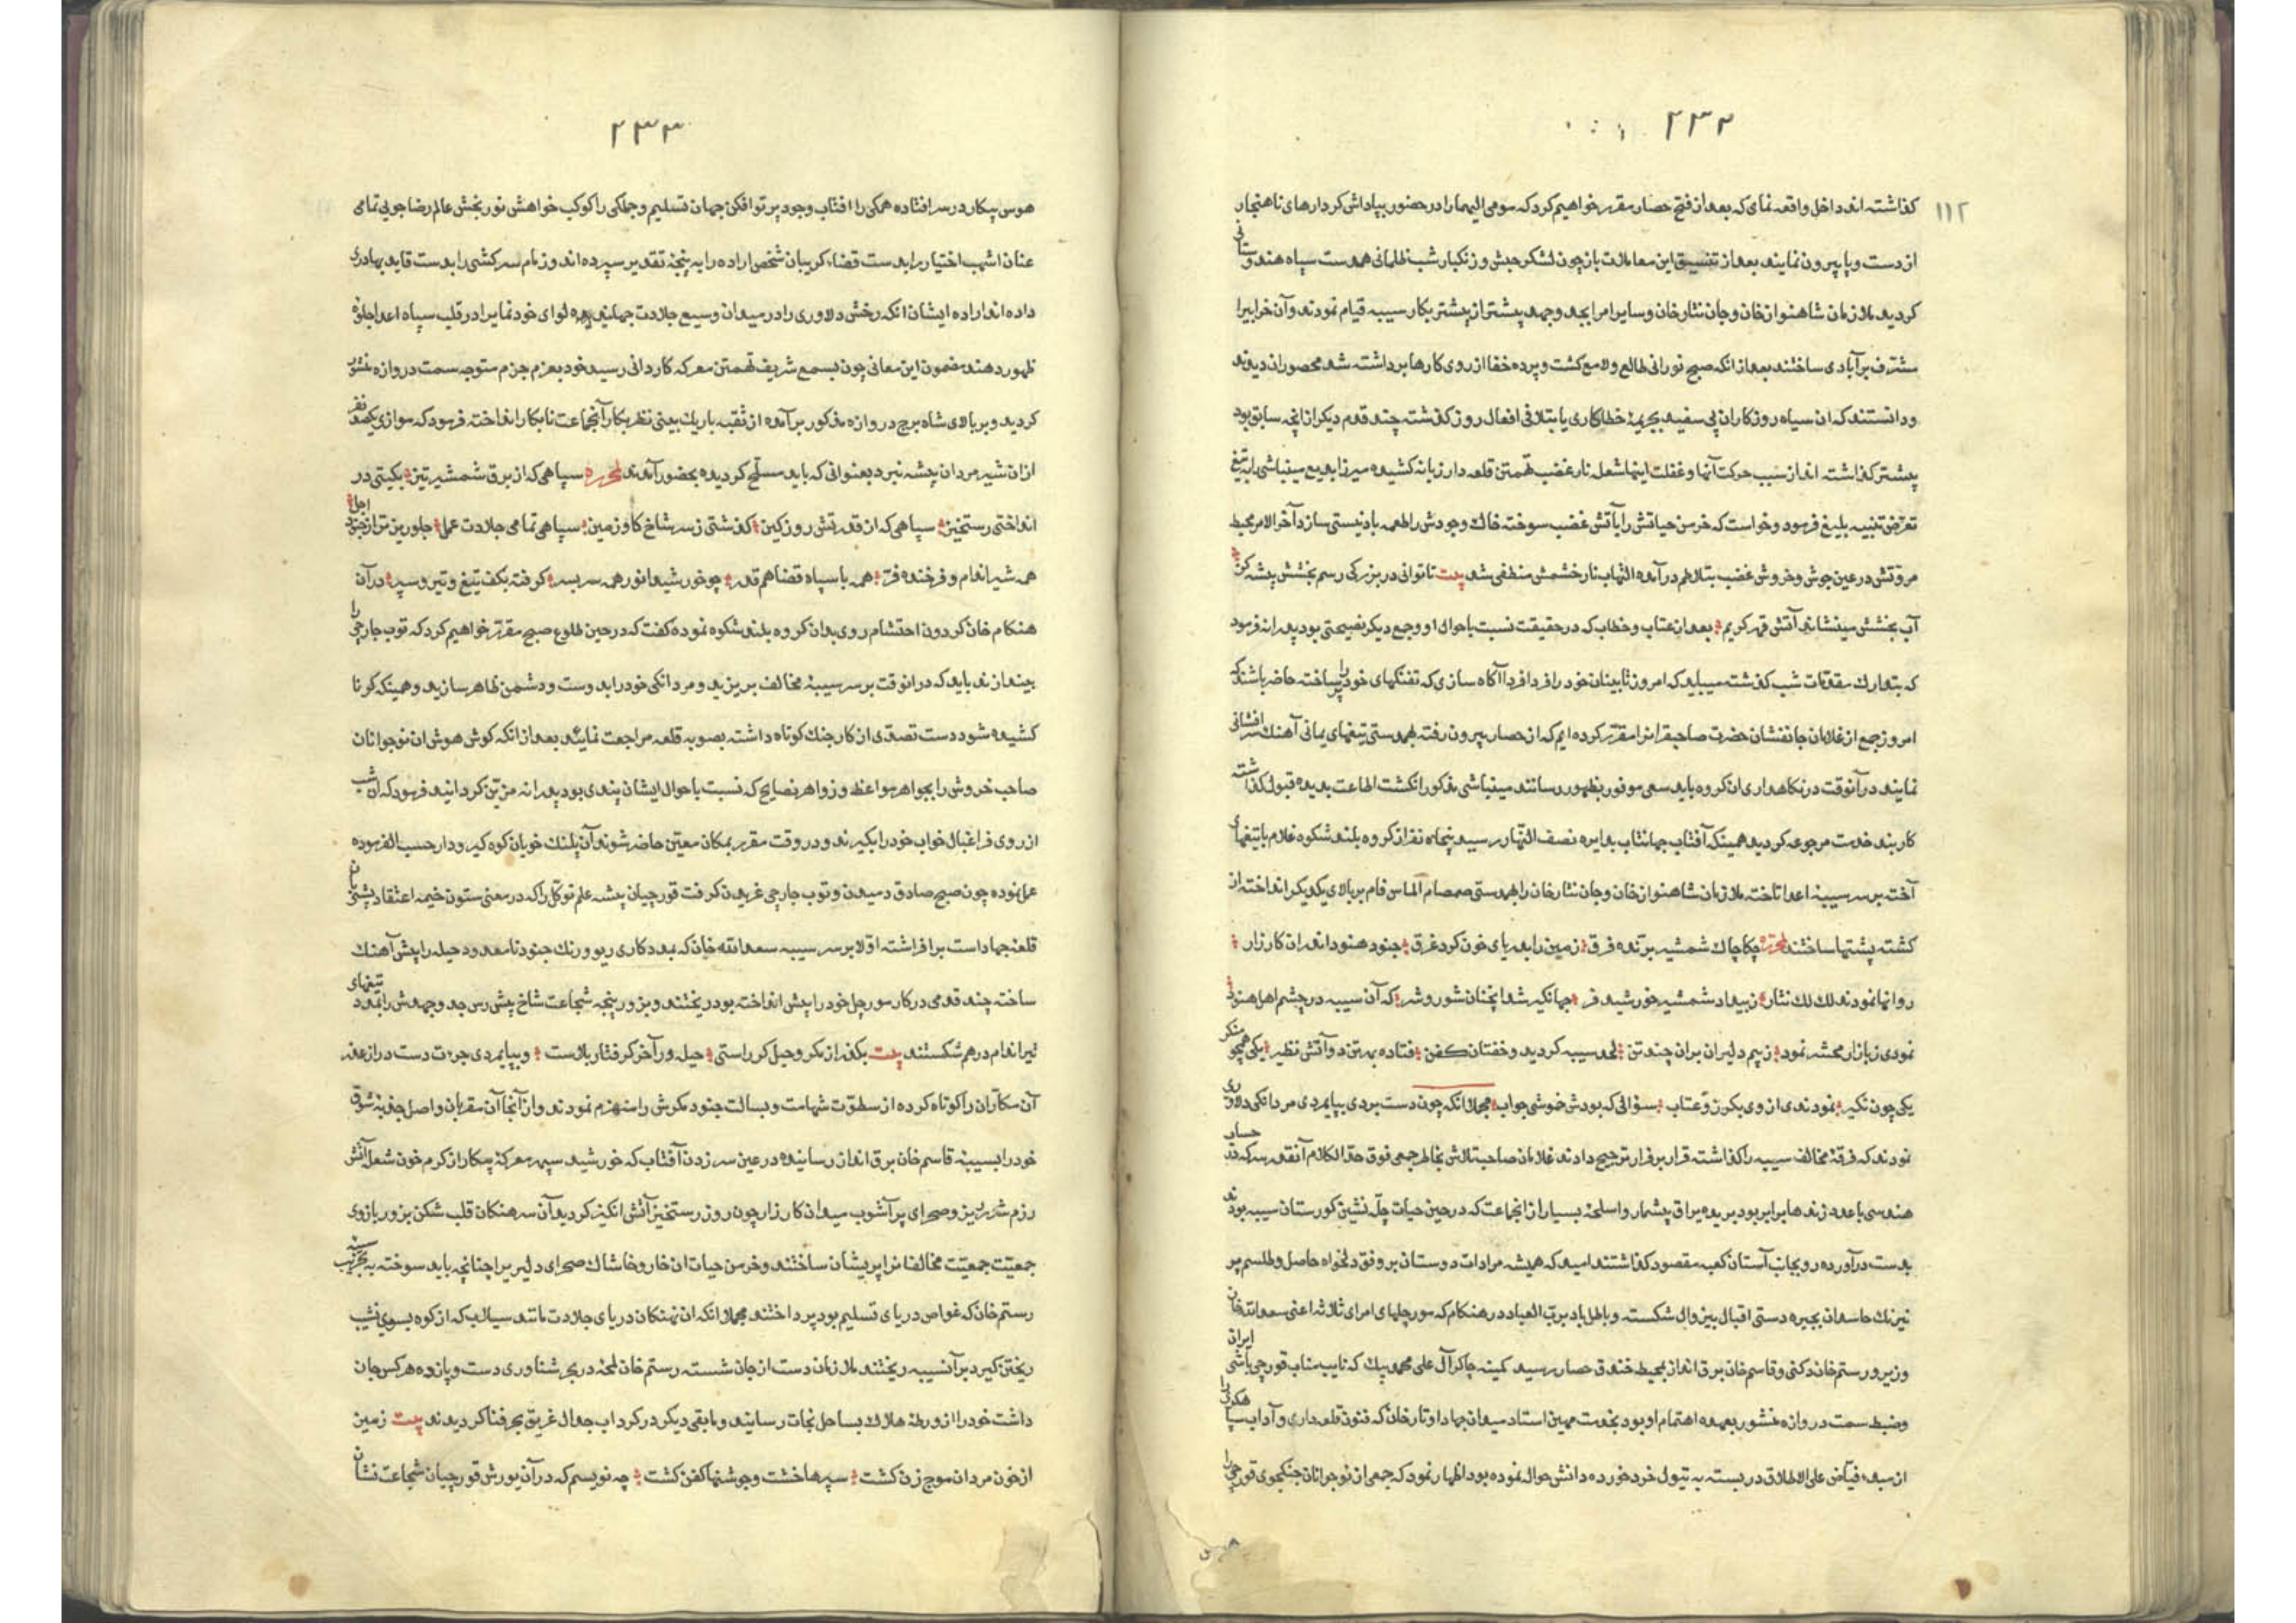 ۲۳۲
۱۱۲
كذاشته اند داخل واقعه نماى كه بعد از فتح حصار مقرر خواهيم كرد كه مومى اليهما را در حضور بپاداش كردارهاى ناهنجار
از دست و پا بيرون نمايند بعد از تنسيق اين معاملات باز چون لشكر حبش و زنكبار شب ظلمانى همدست سپاه هندوستانى
كرديد ملازمان شاهنواز خان و جان نثار خان و ساير امرا بجد و جهد پيشتر از پيشتر بكار سيبه قيام نمودند و آن خرابيرا
مشرف بر آبادى ساختند بعد از انكه صبح نورانى طالع و لامع كشت و پرده خفا از روى كارها برداشته شد محصوران ديدند
و دانستند كه ان سياه روزكاران پى سفيد بجريمۀ خطاكارى يا بتلافى افعال روز كذشته چند قدم ديكر از انچه سابق بود
پيشتر كذاشته اند از سبب حركت آنها و غفلت اينها شعله نار غضب تهمتن قلعه دار زبانه كشيده ميرزا بديع مينباشى را به تيغ
تعرض تنبيه بليغ فرمود و خواست كه خرمن حياتش را بآتش غضب سوخته خاك وجودش را طعمه باد نيستى سازد آخر الامر محيط
مروتش در عين جوش و خروش غضب بتلاطم درآمده التهاب نار خشمش منطفى شد بيت تا توانى در بزركى رسم بخشش پيشه كن
آب بخشش مينشاند آتش قهر كريم بعد از عتاب و خطاب كه در حقيقت نسبت باحوال او و جمع ديكر نصيحتى بود پدرانه فرمود
كه بتدارك مقدمات شب كذشته ميبايد كه امروز تابينان خود را فردا فردا آكاه سازى كه تفنكهاى خود را پر ساخته حاضر باشند كه
امروز جمع از غلامان جانفشان حضرت صاحبقرانرا مقرر كرده ايم كه از حصار بيرون رفته بهمدستى تيغهاى يمانى آهنك سر افشانى
نمايند در آنوقت در نكاهدارى ان كروه بايد سعى موفور بظهور رسانند مينباشى مذكور انكشت اطاعت بديده قبول كذاشته
كاربند خدمت مرجوعه كرديد همينكه آفتاب جهانتاب بدايره نصف النهار رسيد پنجاه نفر از كروه بلند شكوه غلام با تيغهاى
آخته بر سر سيبۀ اعدا تاخته ملازمان شاهنواز خان و جان نثار خان را بهمدستى صمصام الماس فام بر بالاى يكديكر انداخته از
كشته پشتها ساختند لمحرره چكاچاك شمشير برنده فرق زمين را بدرياى خون كرد غرق جنود هنود اندران كارزار
روانها نمودند لك لك نثار ز بيداد شمشير خورشيد فر جهانكير شد انچنان شور و شر كه آن سيبه در چشم اهل هنود
نمودى ز بازار محشر نمود ز بيم دليران بران چند تن لحد سيبه كرديد و خفتان كفن فتاده بهر تن دو آتش نظير يكى همچو منكر
يكى چون نكير نمودندى از وى بكرز و عتاب سؤالى كه بودش خوشى جواب مجملا انكه چون دست بردى بپايمردى مردانكى دلاورى
نمودند كه فرقۀ مخالف سيبه را كذاشته قرار بر فرار ترجيح دادند غلامان صاحبتلاش بخاطر جمعى فوق حد الكلام آنقدر سر كه در حساب
هندسى با عدد زندها برابر بود بريده يراق بيشمار و اسلحۀ بسيار از انجماعت كه در حين حيات چله نشين كورستان سيبه بودند
بدست درآورده رو بجانب آستان كعبه مقصود كذاشتند اميد كه هميشه مرادات دوستان بر وفق دلخواه حاصل و طلسم پر
نيرنك حاسدان بچيره دستى اقبال بيزوال شكسته و باطل باد برب العباد در هنكام كه سورجلهاى امراى ثلاثه اعنى سعد الله خان
وزير و رستم خان دكنى و قاسم خان برق انداز بمحيط خندق حصار رسيد كمينه چاكر آل على محمد بيك كه نايب مناب قورچى باشى ايران
و ضبط سمت دروازه منشور بعهده اهتمام او بود بخدمت مهين استاد ميدان جهاد اوتار خان كه فنون قلعه دارى و آداب سپاهكرى را
از مبدء فياض على الاطلاق دربسته به تيول خرد خورده دانش حواله نموده بود اظهار نمود كه جمعى از نوجوانان جنكجوى قورچى را
هوس
۲۳۳
هوس پيكار در سر افتاده همكى را افتاب وجود پرتو افكن جهان تسليم و جملكى را كوكب خواهش نوربخش عالم رضا جويى تمامى
عنان اشهب اختيار را بدست قضا و كريبان شخص اراده را به پنجۀ تقدير سپرده اند و زمام سركشى را بدست قايد بهادرى
داده اند اراده ايشان انكه رخش دلاورى را در ميدان وسيع جلادت جهانيده لواى خودنمايرا در قلب سپاه اعدا جلوۀ
ظهور دهند مضمون اين معانى چون بسمع شريف تهمتن معركه كاردانى رسيد خود بعزم جزم متوجه سمت دروازه منشور
كرديد و بر بالاى شاه برج دروازه مذكور برآمده از ثقبه باريك بينى نظر بكار آنجماعت نابكار انداخته فرمود كه موازى يكصد نفر
ازان شير مردان پيشه نبرد بعنوانى كه بايد مسلح كرديده بحضور آمدند لمحرره سپاهى كه از برق شمشير تيز بكيتى در
انداختى رستخيز سپاهى كه از قدرتش روز كين كذشتى ز سر شاخ كاو زمين سپاهى تمامى جلادت عمل جلوريزتر از جنود اجل
همه شير اندام و فرخنده فر همه با سپاه قضا هم قدر چو خورشيد انور همه سربسر كرفته بكف تيغ و تير و سپر در آن
هنكام خان كردون احتشام روى بدان كروه بلند شكوه نموده كفت كه در حين طلوع صبح مقرر خواهيم كرد كه توپ جارچى را
بيندازند بايد كه درانوقت بر سر سيبۀ مخالف بريزيد و مردانكى خود را بدوست و دشمن ظاهر سازيد و همينكه كرنا
كشيده شود دست تصدى از كار جنك كوتاه داشته بصوب قلعه مراجعت نمائيد بعد از انكه كوش هوش ان نوجوانان
صاحب خروش را بجواهر مواعظ و زواهر نصايح كه نسبت باحوال ايشان پندى بود پدرانه مزين كردانيد فرمود كه ان شب
از روى فراغبال خواب خود را بكيرند و در وقت مقرر بمكان معين حاضر شوند آن پلنك خويان كوه كير و دار حسب الفرموده
عمل نموده چون صبح صادق دميدن و توپ جارچى غريدن كرفت قورچيان پيشه علم توكل را كه در معنى ستون خيمه اعتقاد پشتيبان
قلعۀ جهاد است برافراشته اولا بر سر سيبه سعد الله خان كه بمددكارى ريو و رنك جنود نامعدود حيله را پيش آهنك
ساخته چند قدمى در كار سورجل خود را پيش انداخته بود ريختند و بزور پنجه شجاعت شاخ پيش رس جد و جهدش را بمدد تيغهاى
تيز اندام درهم شكستند بيت بكذر از مكر و حيل كر راستى حيله ور آخر كرفتار بلاست و بپايمردى جرءت دست دراز عذر
آن مكاران را كوتاه كرده از سطوت شهامت و بسالت جنود مكرش را منهزم نمودند و از آنجا آن مقربان واصل جذبه شوق
خود را بسيبۀ قاسم خان برق انداز رسانيده در عين سر زدن آفتاب كه خورشيد سپهر معركۀ پيكار از كرم خون شعله آتش
رزم شرر ريز و صحراى پرآشوب ميدان كارزار چون روز رستخيز آتش انكيز كرديد آن سرهنكان قلب شكن بزور بازوى
جمعيت جمعيت مخالفانرا پريشان ساختند و خرمن حيات ان خار و خاشاك صحراى دليرى را چنانچه بايد سوخته به تخريب سيبه
رستم خان كه غواص درياى تسليم بود پرداختند مجملا انكه ان نهنكان درياى جلادت مانند سيلاب كه از كوه بسوى نشيب
ريختن كيرد بر آنسيبه ريختند ملازمان دست از جان شسته رستم خان لمحۀ در بحر شناورى دست و پا زده هر كس جان
داشت خود را از ورطۀ هلاك بساحل نجات رسانيد و مابقى ديكر در كرداب جدال غريق بحر فنا كرديدند بيت زمين
از خون مردان موج زن كشت سپرها خشت و جوشنها كفن كشت چه نويسم كه در آن يورش قورچيان شجاعت نشان